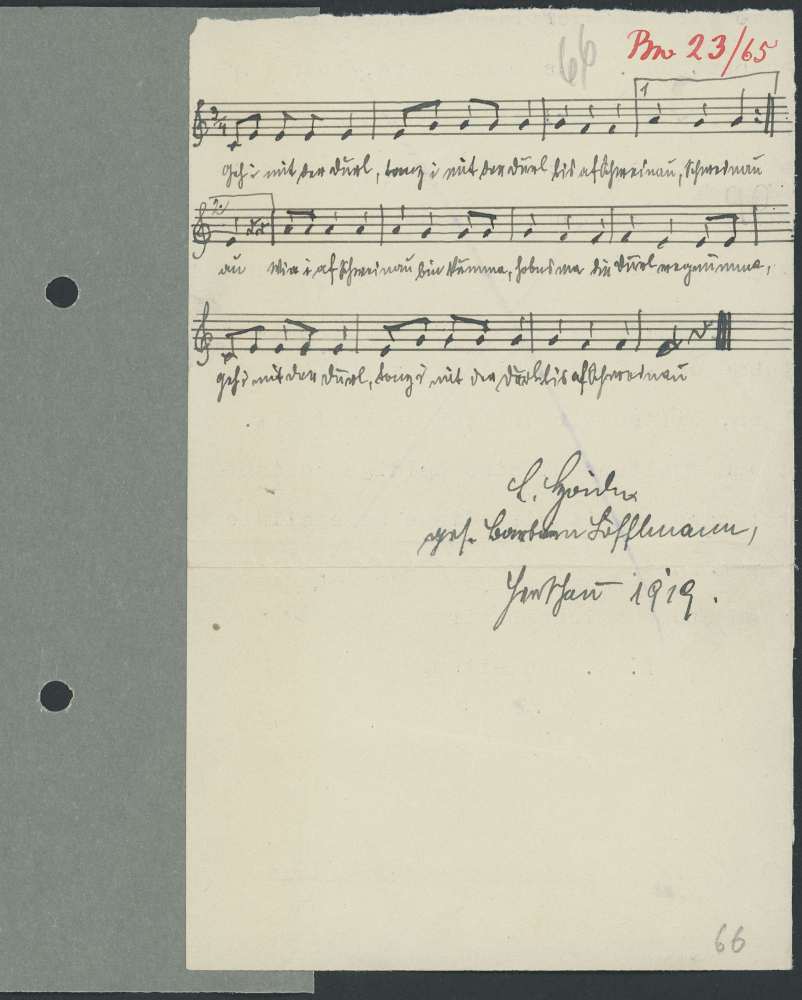 66
Bw 23/65
3/4
1
Geh i mit der Dürl, tanz i mit der Dürl bis af Schweinau, Schweinau
2.
au Wia i af Schweinau bin kumma, hobns ma die Dürl wegnumma,
geh i mit der Dürl, tanz i mit der Dürl bis af Schweinau
ges. Barbara Löfflmann,
1919.
66